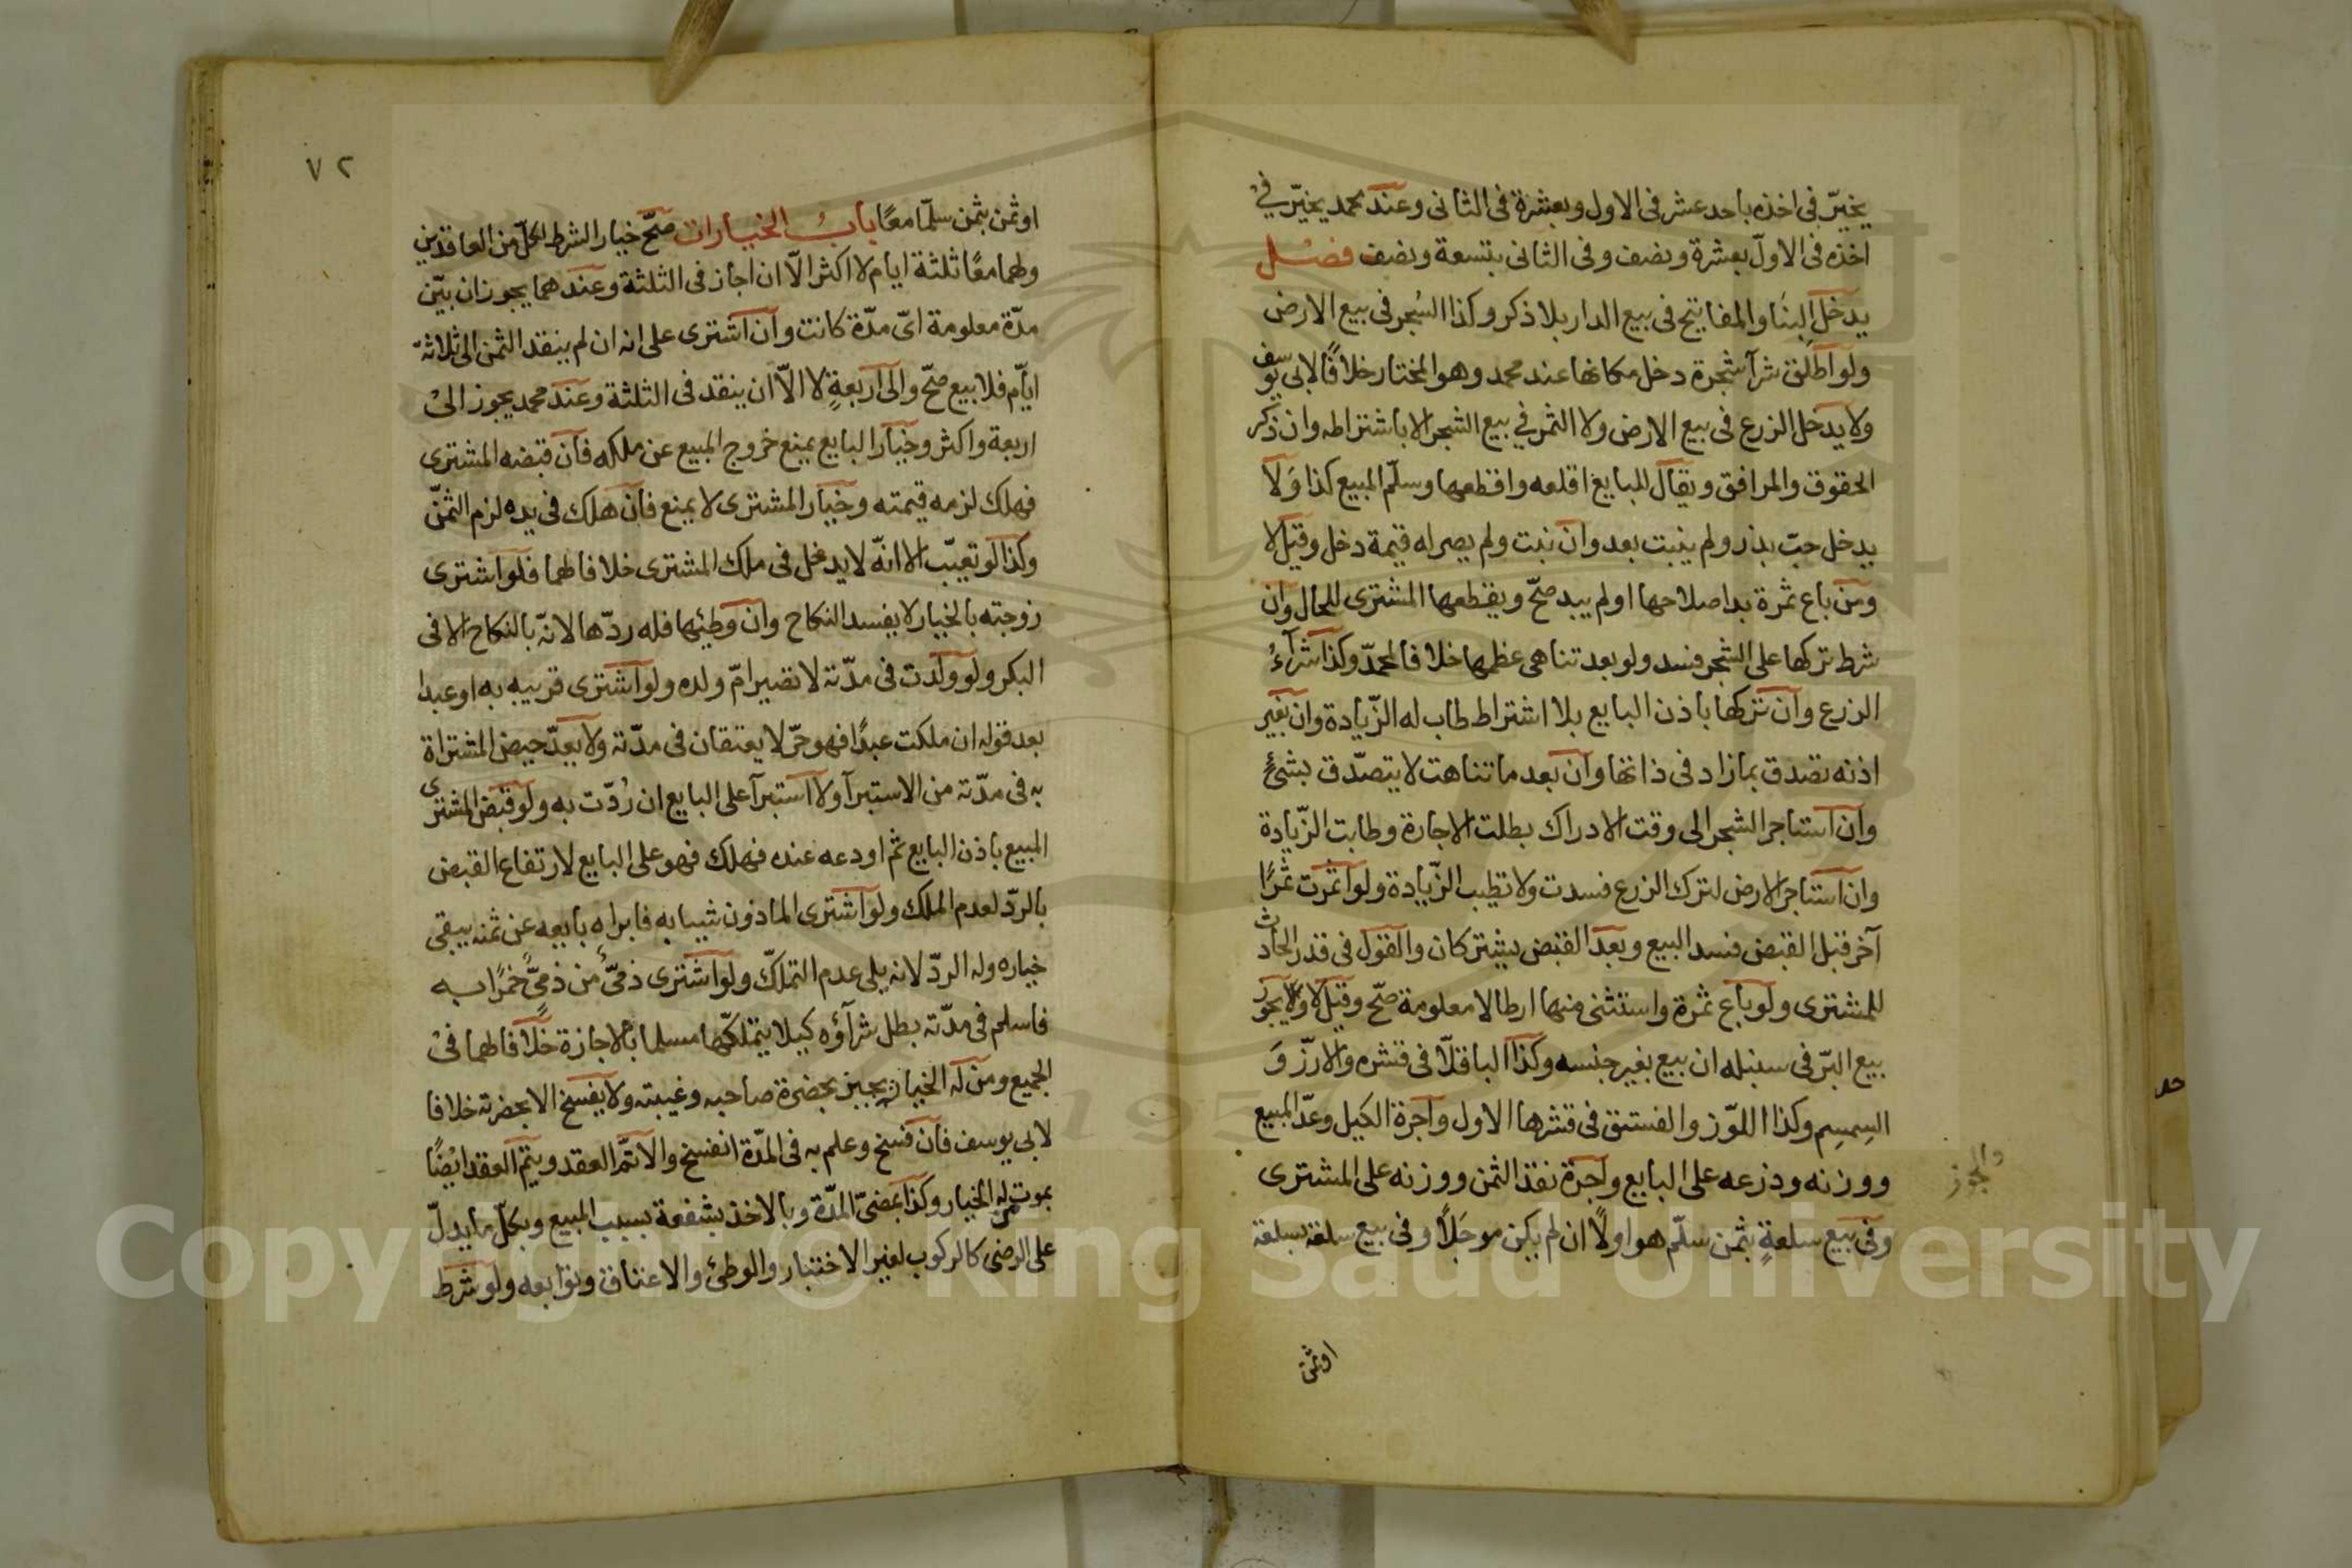 يخيّر فى اخذه باحد عشر فى الاول وبعشرة فى الثانى وعند محمد يخيّر في
اخذه فى الاولّ بعشرة ونصف وفى الثانى بتسعة ونصف فصل
يدخل البنَا والمفاتيح فى بيع الدار بلا ذكر وكذا الشجر فى بيع الارض
ولو اطلق شرآ شجرة دخل مكانها عند محمد وهو المختار خلافًا لابى يوسف
ولا يدخل الزرع فى بيع الارض ولا الثمر في بيع الشجر الا باشتراطه وان ذكر
الحقوق والمرافق ويقال للبايع اقلعه واقطعها وسلّم المبيع كذا وَلا
يدخل حبّ بذر ولم ينبت بعد وان نبت ولم يصر له قيمة دخل وقيل لا
ومن باع ثمرة بدا صلاحها او لم يبد صحّ ويقطعها المشترى للحال وان
شرط تركها على الشجر فسد ولو بعد تناهى عظمها خلافا لمحمدّ وكذا شرآءُ
الزرع وان تركها باذن البايع بلا اشتراط طاب له الزّيادة وان بغير
اذنه تصدق بما زاد فى ذاتها وان بعد ما تناهت لا يتصدّق بشئٍ
وان استاجر الشجر الى وقت الادراك بطلت الاجارة وطابت الزّيادة
وان استاجر الارض لترك الزرع فسدت ولا تطيب الزّيادة ولو اثمرت ثمرًا
آخر قبل القبض فسد البيع وبعد القبض يشتركان والقول فى قدر الحادث
للمشترى ولو باع ثمرة واستثنى منها ارطالا معلومة صحّ وقيل لا ولا يجوز
بيع البرّ فى سنبله ان بيع بغير جنسه وكذا الباقلّا فى قشره والارزّ وَ
السِمسِم وكذا اللوّز والفستق فى قشرها الاول واجرة الكيل وعدّ المبيع
والجوز
ووزنه وذرعه على البايع واجرة نقد الثمن ووزنه على المشترى
وفى بيع سلعةٍ بثمن سلّم هو اولًا ان لم يكن موجَلًا وفى بيع سلعة بسلعة
او ثمن
٧٢
او ثمن بثمن سلّما معًا بابُ الخيارات صحّ خيار الشرط لكلّ من العاقدين
ولهما معًا ثلثة ايام لا اكثر الّا ان اجاز فى الثلثة وعندهما يجوز ان بيّن
مدّة معلومة اىّ مدّة كانت وان اشترى على انه ان لم ينقد الثمن الى ثلاثة
ايّام فلا بيع صحّ والى اربعةٍ لا الّا ان ينقد فى الثلثة وعند محمد يجوز الىْ
اربعة واكثر وخيار البايع يمنع خروج المبيع عن ملكه فان قبضه المشترى
فهلك لزمه قيمته وخيار المشترى لا يمنع فان هلك فى يده لزم الثمنّ
وكذا لو تعيّب الا انّه لا يدخل فى ملك المشترى خلافا لهما فلو اشترى
زوجته بالخيار لا يفسد النكاح وان وطئها فله ردّها لانّه بالنكاح الا فى
البكر ولو ولدت فى مدّته لا تصير امّ ولده ولو اشترى قريبه به او عبدا
بعد قوله ان ملكت عبدًا فهو حرّ لا يعتقان فى مدّته ولا يعدّ حيض المشتراة
به فى مدّته من الاستبرآ ولا استبرآ على البايع ان رُدّت به ولو قبض المشترى
المبيع باذن البايع ثم اودعه عنده فهلك فهو على البايع لارتفاع القبض
بالردّ لعدم الملك ولو اشترى الماذون شيبا به فابراه بايعه عن ثمنه يبقى
خياره وله الردّ لانه يلى عدم التملكّ ولو اشترى ذمىّ من ذمىٍّ خمرًا به
فاسلم فى مدّته بطل شرآؤه كيلا يتملكّها مسلما بالاجازة خلافا لهما فىْ
الجميع ومن له الخيار يجيز بحضرة صاحبه وغيبته ولا يفسخ الا بحضرته خلافا
لابى يوسف فان فسخ وعلم به فى المدّة انفسخ والا تمّ العقد ويتم العقد ايضًا
بموت من له الخيار وكذا بمضىّ المدّة وبالاخذ بشفعة بسبب المبيع وبكلّ ما يدلّ
على الرضى كالركوب لغير الاختبار والوطئ والاعتاق وتوابعه ولو شرط
Copyright © King Saud University